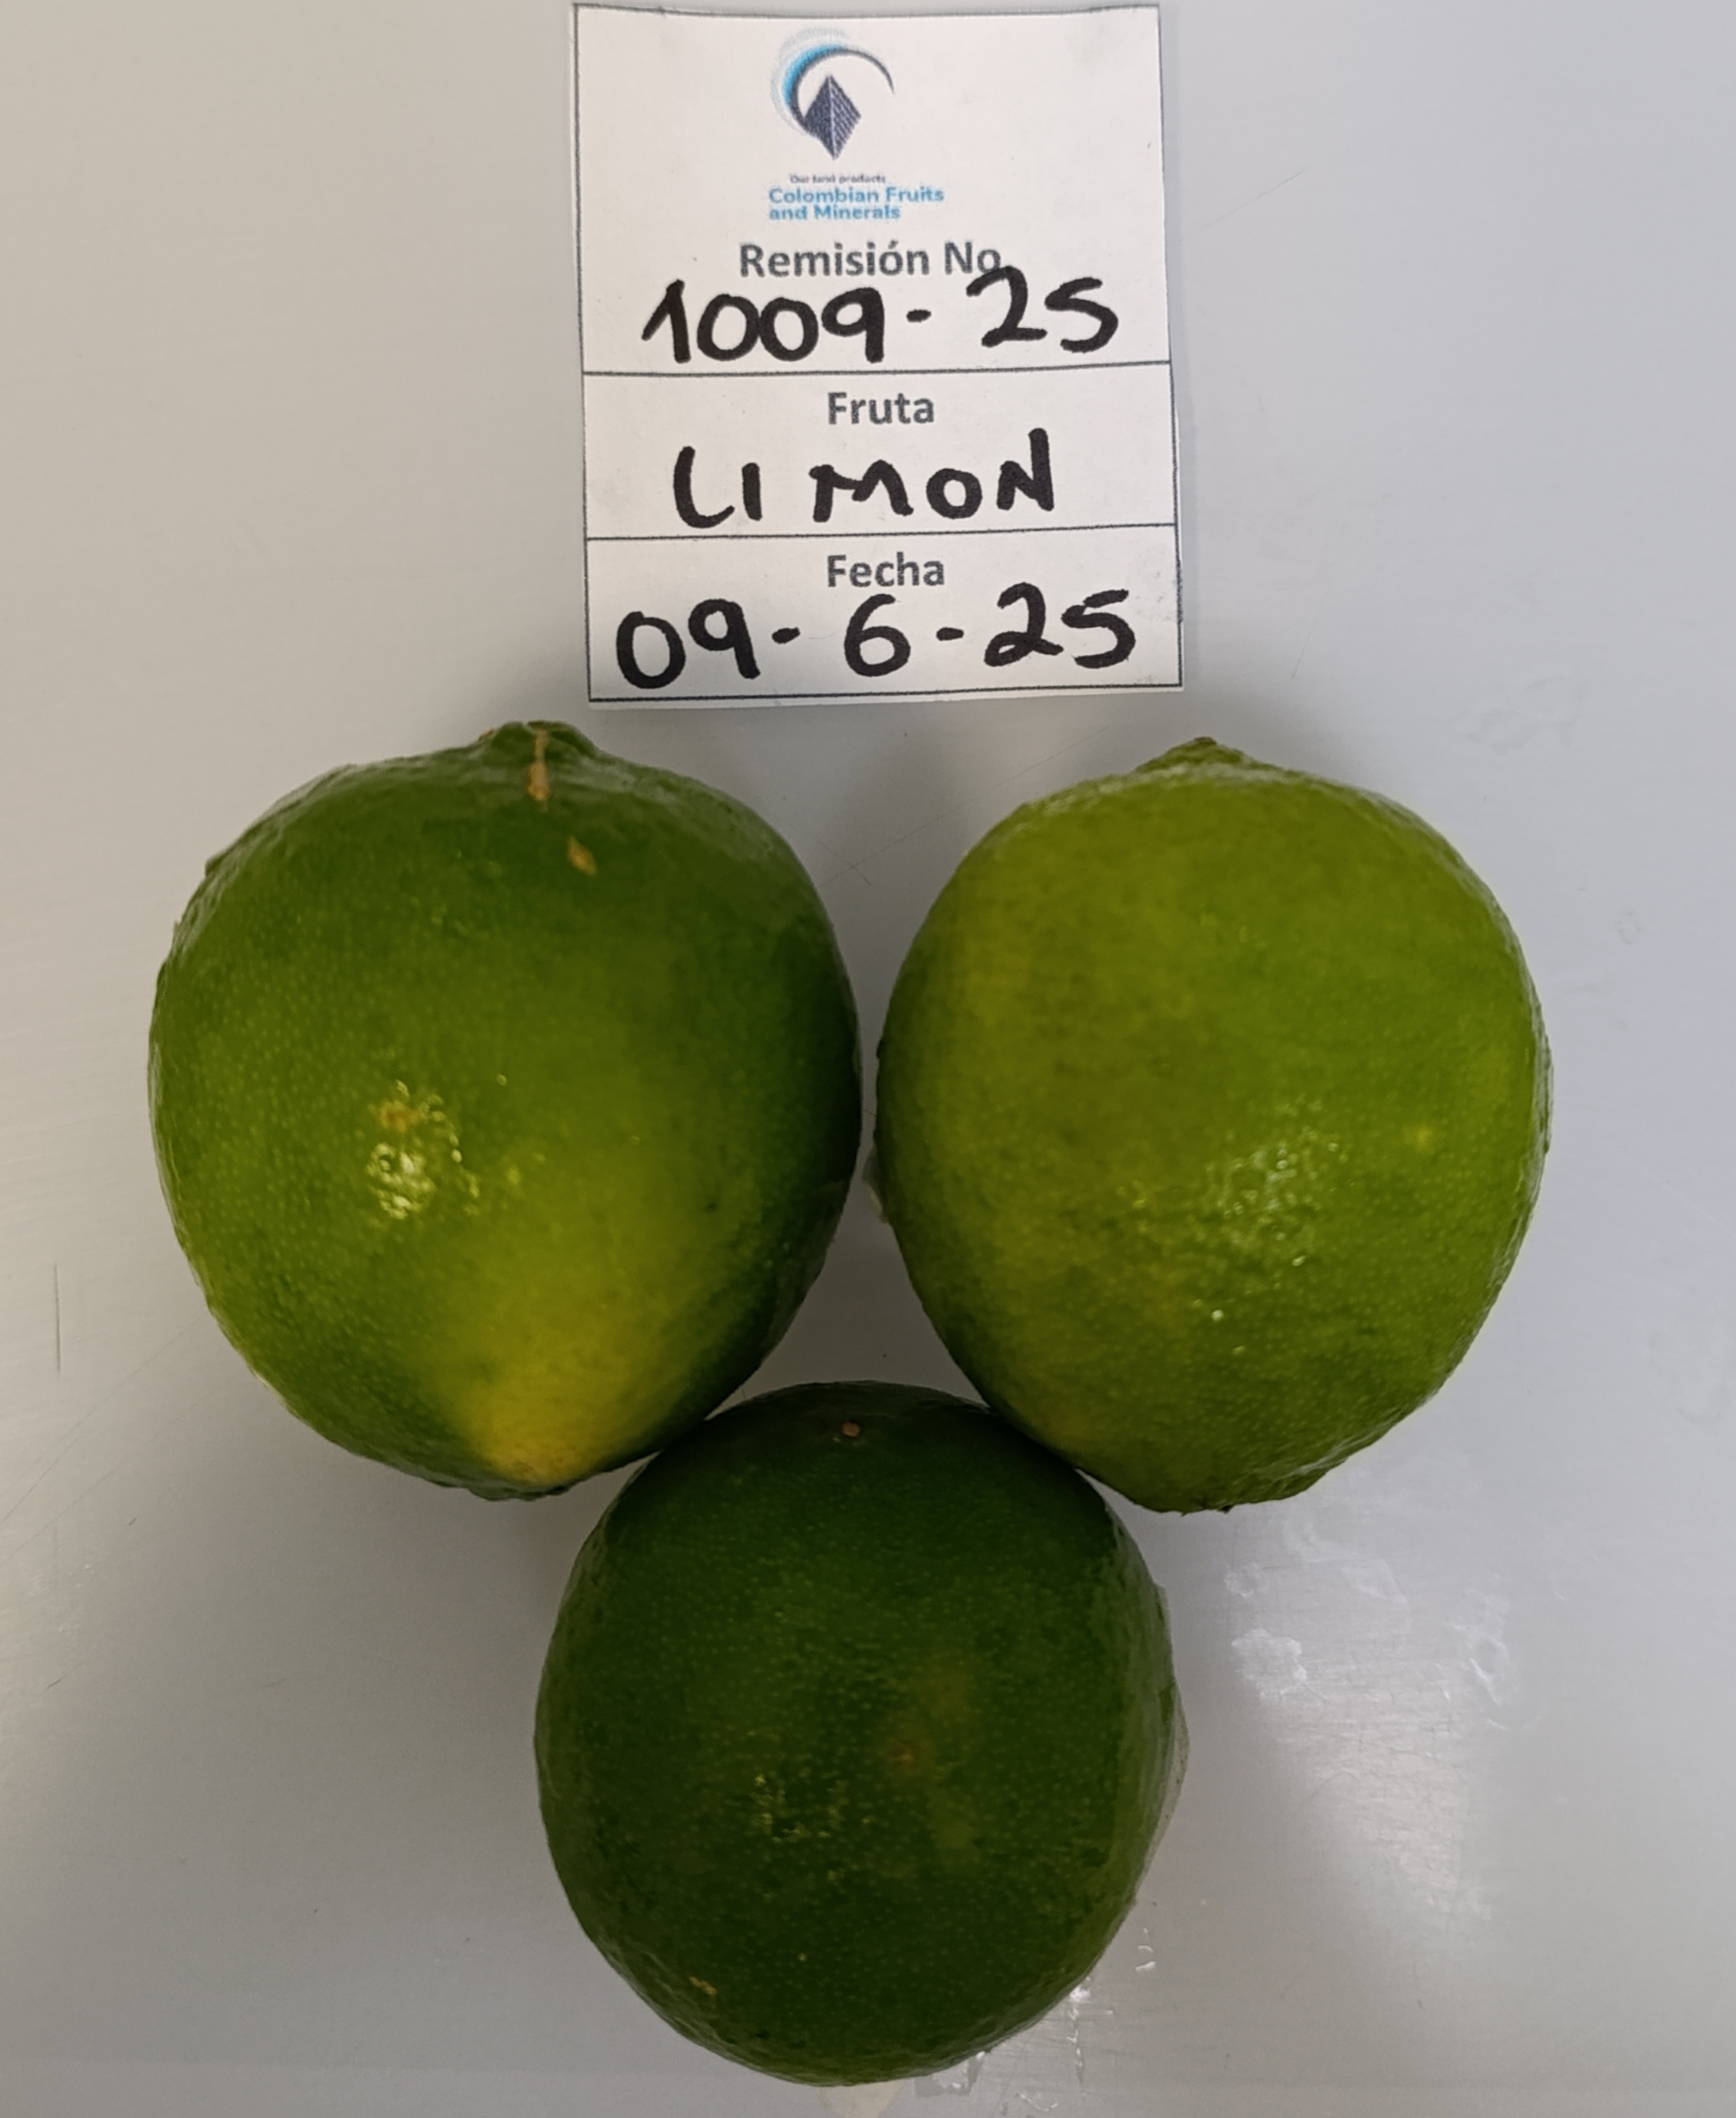 Our land products
Colombian Fruits
and Minerals
Remisión No.
1009-25
Fruta
LIMON
Fecha
09-6-25